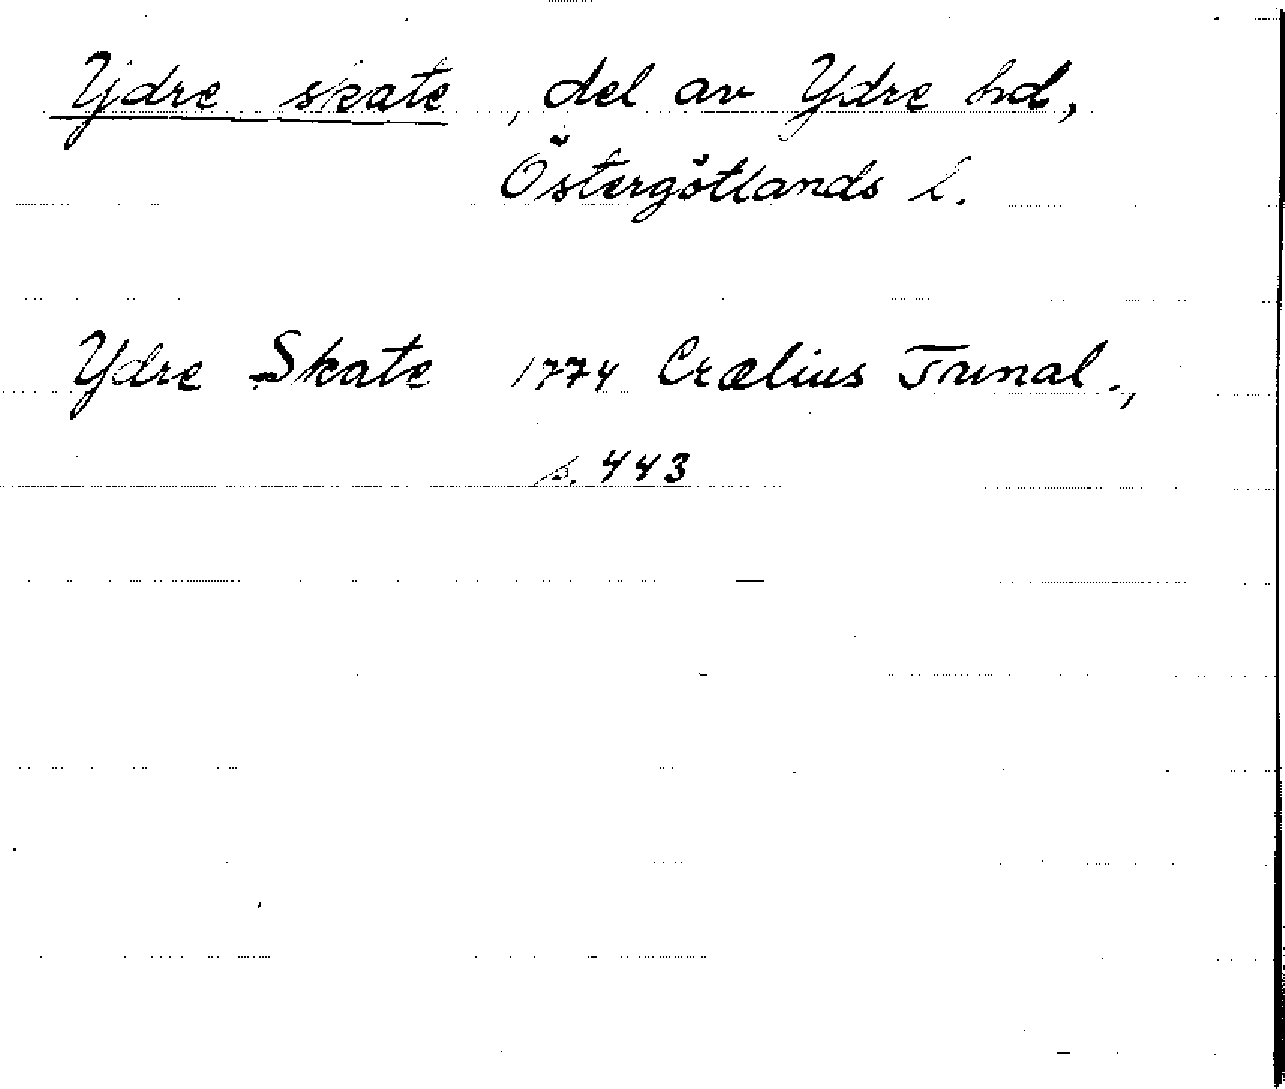 Ydre skate, del av Ydre hd,
Östergötlands l.
Ydre Skate 1774 Crælius Tunal.,
s. 443